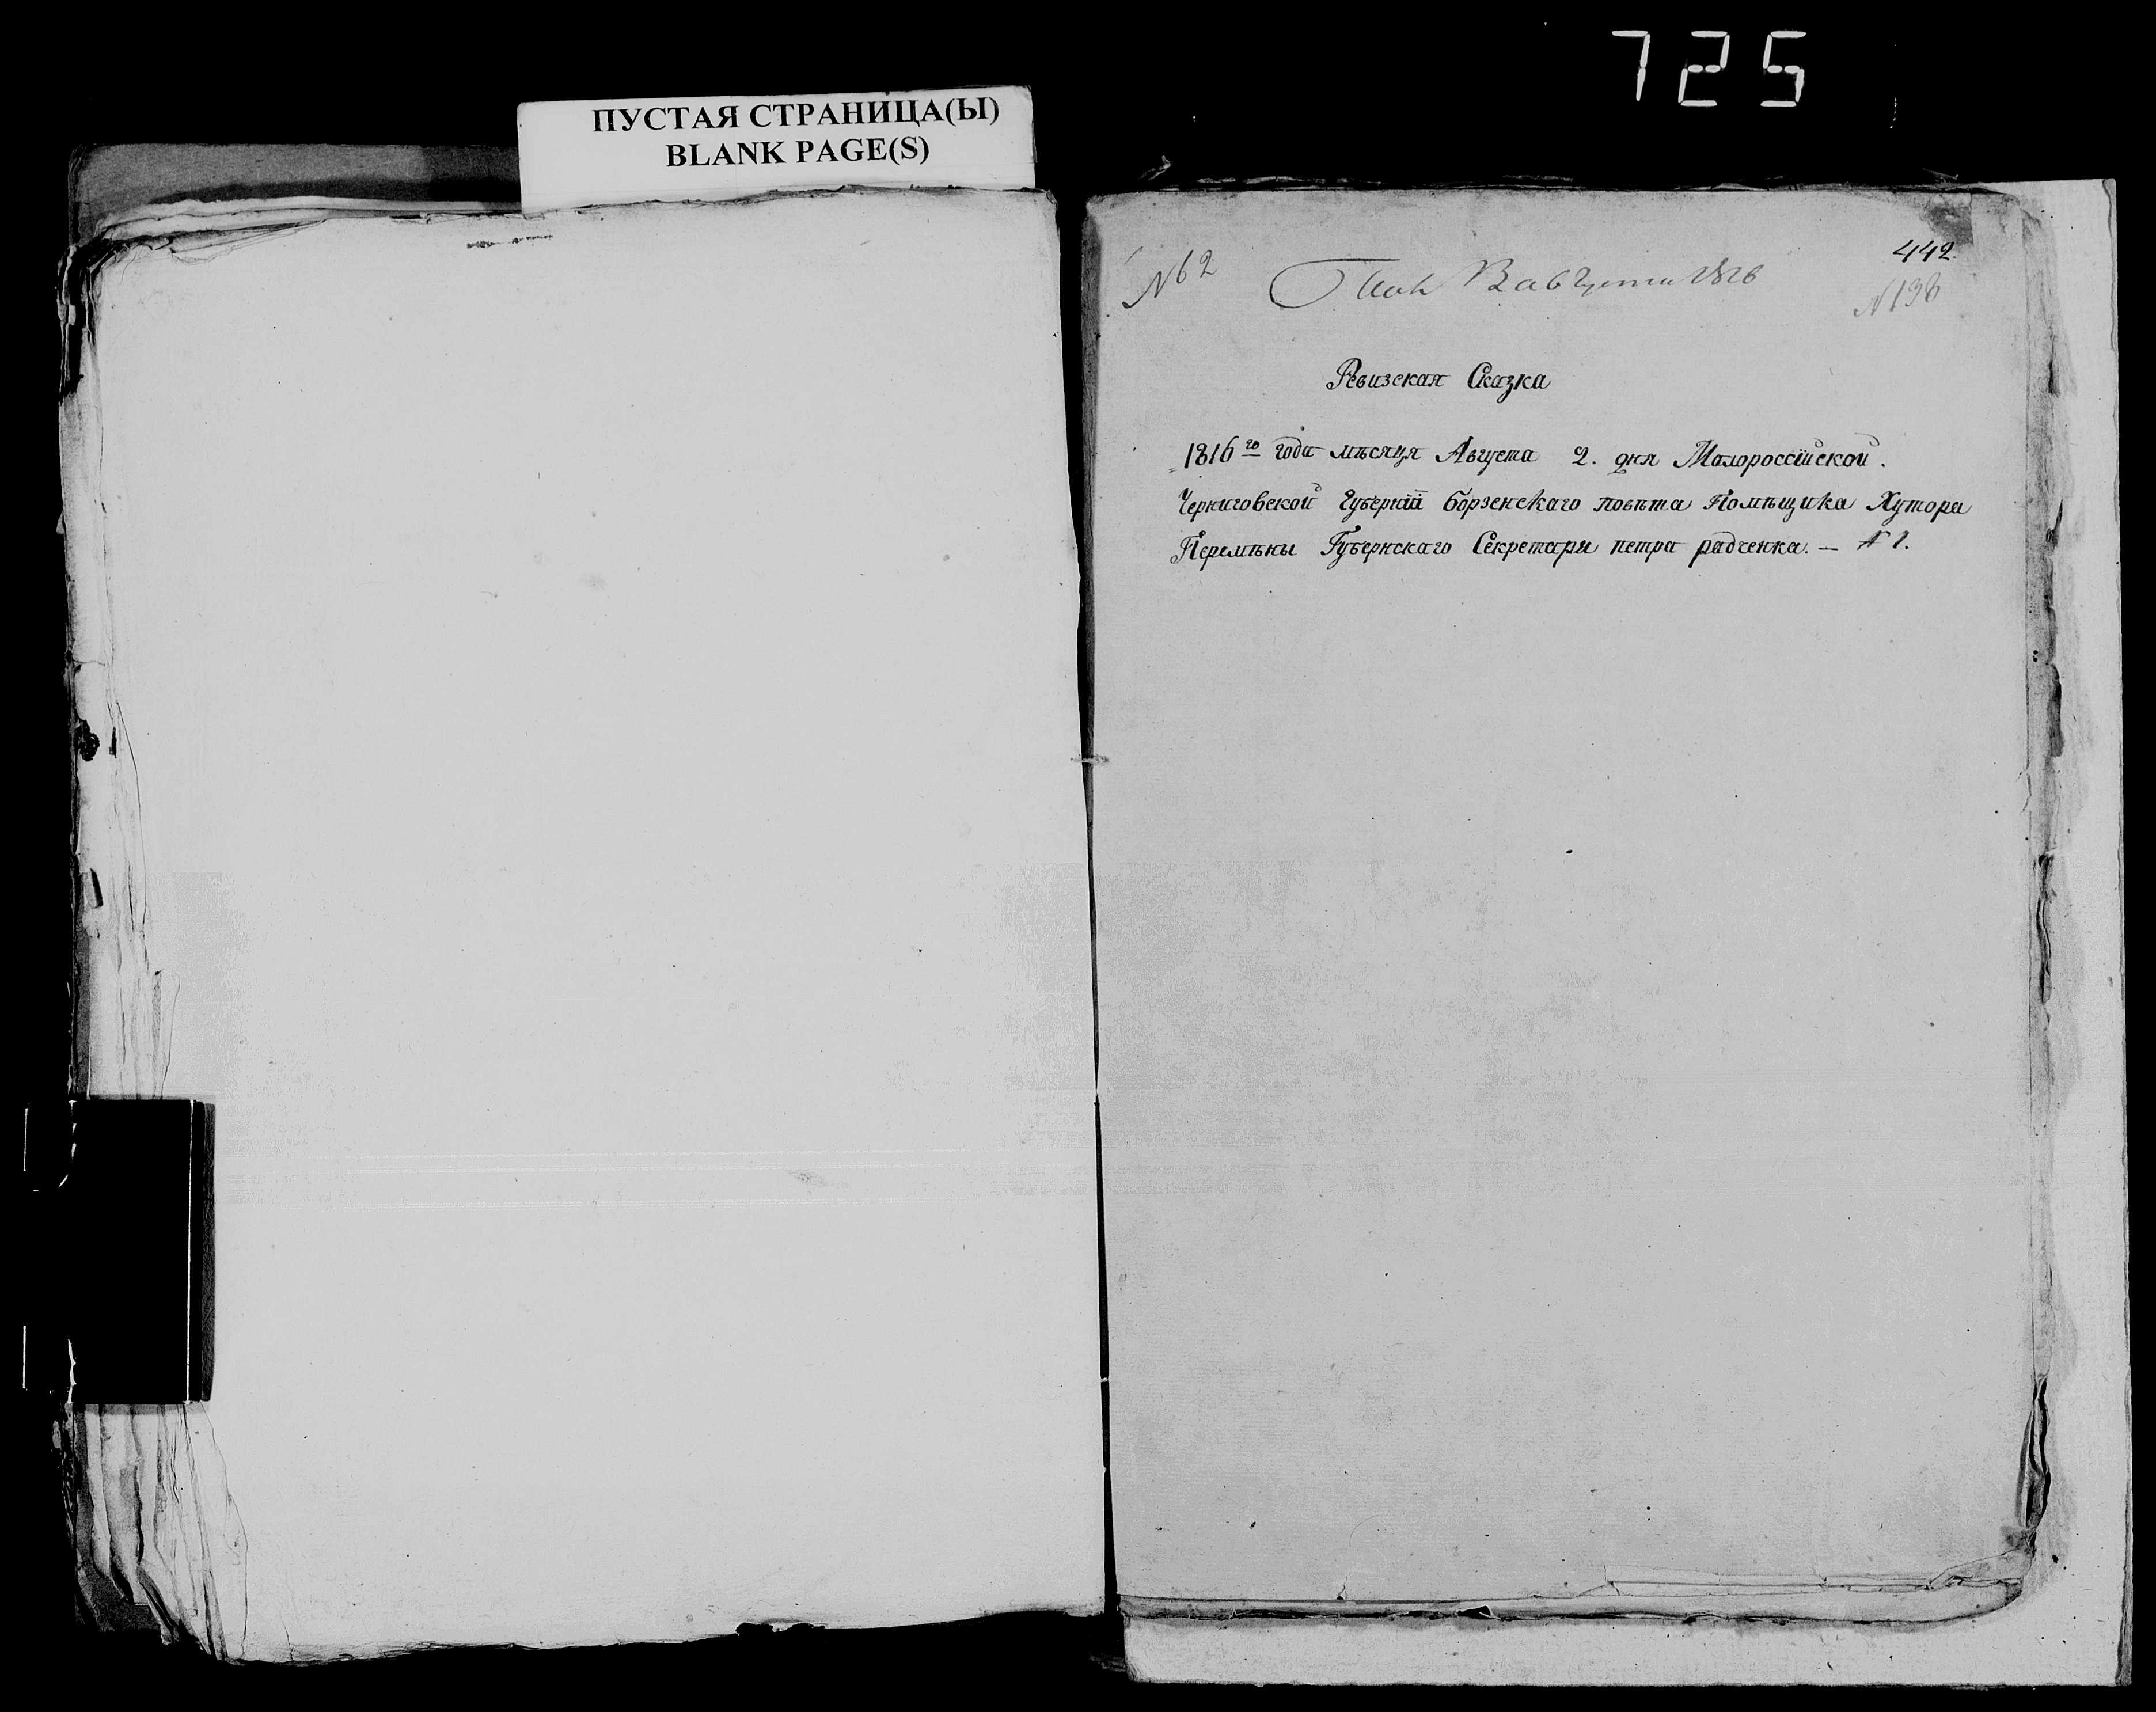 725
ПУСТАЯ СТРАНИЦА(Ы)
BLANK PAGE(S)
442.
№ 62
Августа 1816
N 198
Ревизская Сказка
1816го года мѣсяца Августа 2. дня Малороссійской.
Черниговской Губерніи борзенскаго повѣта Помѣщика Хутора
Перемѣны Губернскаго Секретаря петра радченка. — № 1.